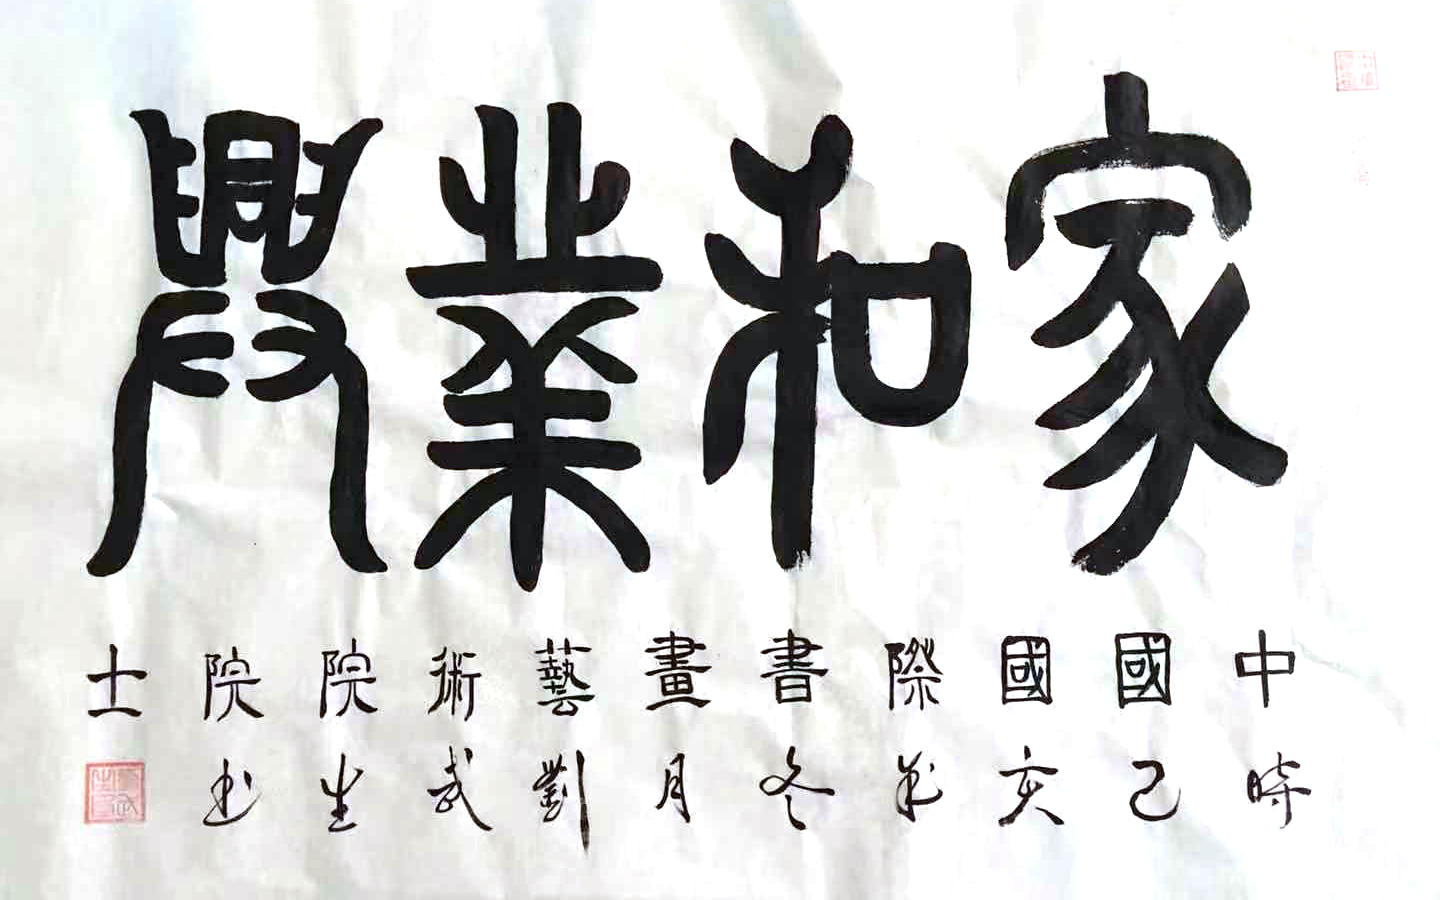 家和業興
中國國際書畫藝術院院士
時己亥年冬月劉武生书